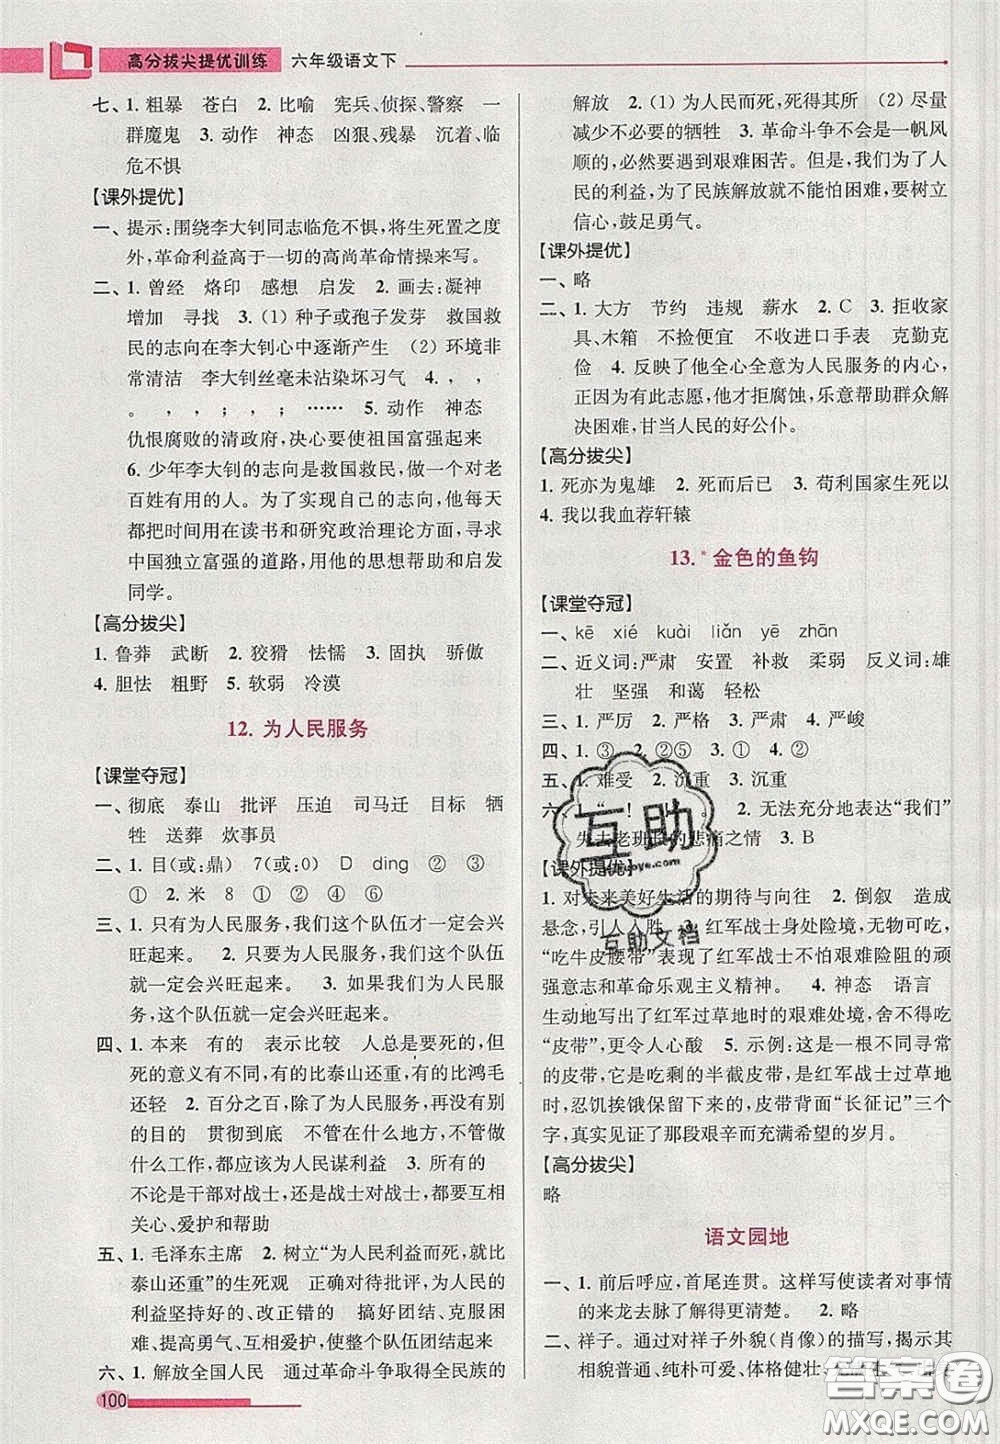 高分拔尖提优训练 六年级语文下
七、1. 粗暴 苍白 2. 比喻 宪兵、侦探、警察 一
群魔鬼 3. 动作 神态 凶狠、残暴 沉着、临
危不惧
【课外提优】
一、提示:围绕李大钊同志临危不惧,将生死置之度
外,革命利益高于一切的高尚革命情操来写。
二、1. 曾经 烙印 感想 启发 2. 画去:凝神
增加 寻找 3. (1) 种子或孢子发芽 救国救
民的志向在李大钊心中逐渐产生 (2) 环境非
常清洁 李大钊丝毫未沾染坏习气 4. , ,
。 , , ; ; …… 5. 动作 神态
仇恨腐败的清政府,决心要使祖国富强起来
6. 少年李大钊的志向是救国救民,做一个对老
百姓有用的人。为了实现自己的志向,他每天
都把时间用在读书和研究政治理论方面,探寻
中国独立富强的道路,用他的思想帮助和启发
同学。
【高分拔尖】
1. 鲁莽 武断 2. 狡猾 怯懦 3. 固执 骄傲
4. 胆怯 粗野 5. 软弱 冷漠
12. 为人民服务
【课堂夺冠】
一、彻底 泰山 批评 压迫 司马迁 目标 牺
牲 送葬 炊事员
二、1. 目(或:鼎) 7(或:0) D dǐng ② ③
① 2. 米 8 ① ② ③
三、1. 只有为人民服务,我们这个队伍才一定会兴
旺起来。 2. 只要为人民服务,我们这个队伍
就一定会兴旺起来。 3. 如果我们为人民服
务,这个队伍就一定会兴旺起来。
四、1. 本来 有的 表示比较 人总是要死的,但
死的意义有不同,有的比泰山还重,有的比鸿毛
还轻 2. 百分之百,除了为人民服务,再没有别
的目的 贯彻到底 不管在什么地方,不管做
什么工作,都应该为人民谋利益 3. 所有的
不论是干部对战士,还是战士对战士,都要互相
关心、爱护和帮助
五、1. 毛泽东主席 2. 树立“为人民利益而死,就比
泰山还重”的生死观 正确对待批评,为人民的
利益坚持好的、改正错的 搞好团结、克服困
难、提高勇气、互相爱护,使整个队伍团结起来
六、1. 解放全国人民 通过革命斗争取得全民族的
100
解放 2. (1) 为人民而死,死得其所 (2) 尽量
减少不必要的牺牲 3. 革命斗争不会是一帆风
顺的,必然要遇到艰难困苦。但是,我们为了人
民的利益,为了民族解放就不能怕困难,要树立
信心,鼓足勇气。
【课外提优】
一、略
二、1. 大方 节约 违规 薪水 2. C 3. 拒收家
具、木箱 不捡便宜 不收进口手表 克勤克
俭 4. 反映了他全心全意为人民服务的内心,
正因为有此志愿,他才拒腐蚀,乐意帮助群众解
决困难,甘当人民的好公仆。
【高分拔尖】
1. 死亦为鬼雄 2. 死而后已 3. 苟利国家生死以
4. 我以我血荐轩辕
13. * 金色的鱼钩
【课堂夺冠】
一、kē xié kuài liǎn yē zhān
二、近义词:严肃 安置 补救 柔弱 反义词:雄
壮 坚强 和蔼 轻松
三、1. 严厉 2. 严格 3. 严肃 4. 严峻
四、1. ③ 2. ②⑤ 3. ① 4. ②
五、1. 难受 2. 沉重 3. 沉重
六、1. “ ! 。 2. 无法充分地表达“我们”
失去老班长的悲痛之情 3. B
【课外提优】
1. 对未来美好生活的期待与向往 2. 倒叙 造成
悬念,引人入胜 3. 红军战士身处险境,无物可吃,
“吃牛皮腰带”表现了红军战士不怕艰难险阻的顽
强意志和革命乐观主义精神。 4. 神态 语言
生动地写出了红军过草地时的艰难处境,没有吃的
“皮带”,更令人心酸 5. 示例:这是一条长征过草地
的皮带,是吃剩的半截皮带,是红军战士过草地时,
忍饥挨饿保留下来的,皮带背面“长征记”三个
字,真实见证了那段艰辛而充满希望的岁月。
【高分拔尖】
略
语文园地
一、1. 前后呼应,首尾连贯。这样写使读者对事情
的来龙去脉了解得更清楚。 2. 略
二、祥子。通过对祥子外貌(肖像)的描写,揭示其
相貌普通、纯朴可爱、体格健壮、
互助
互助文档
答案卷
MXQE.COM